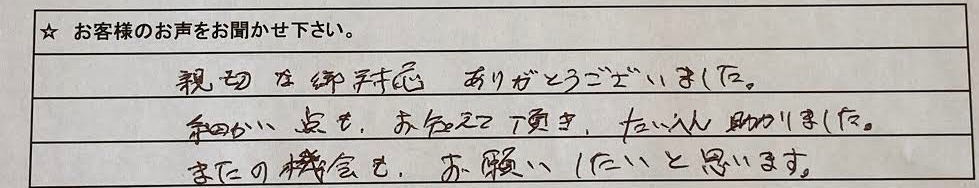 ☆ お客様のお声をお聞かせ下さい。
親切な御対応 ありがとうございました。
細かい点も、お伝えて頂き、たいへん助かりました。
またの機会も、お願いしたいと思います。